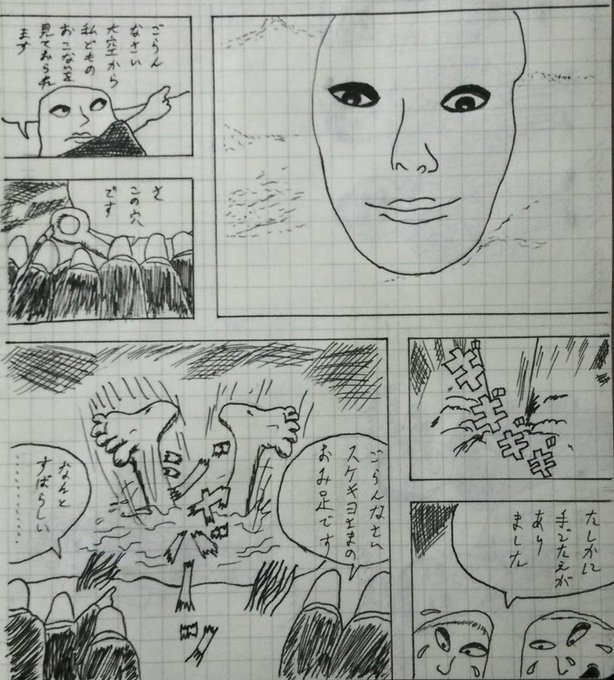 ごらん
なさい
大空から
私どもの
おこないを
見ておられ
ます
さ
この穴
です
ギギギギ
たしかに
手ごたえが
あり
ました
ごらんなさい
スケキヨさまの
おみ足です
なんと
すばらしい
…………